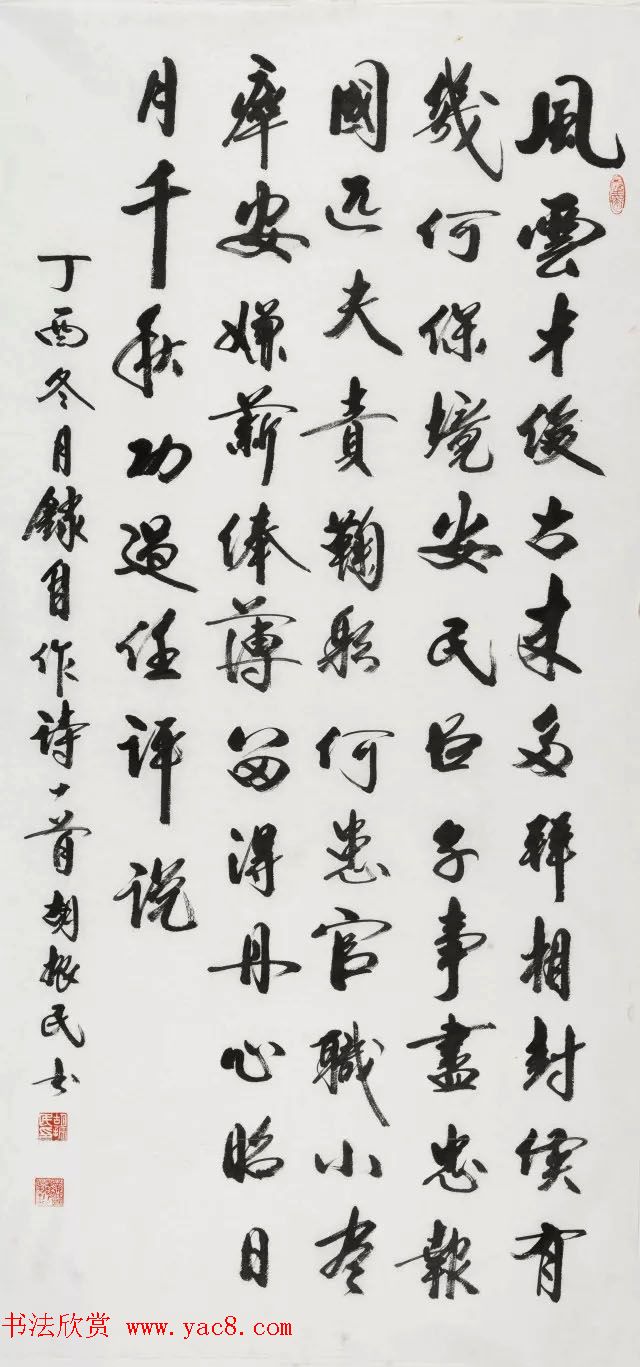 風雲才俊古来多拜相封侯有
幾何保境安民臣子事盡忠報
國匹夫責鞠躬何患官職小尽
瘁安嫌薪俸薄留得丹心昭日
月千秋功過任评说
丁酉冬月錄自作诗一首胡振民书
书法欣赏 www.yac8.com